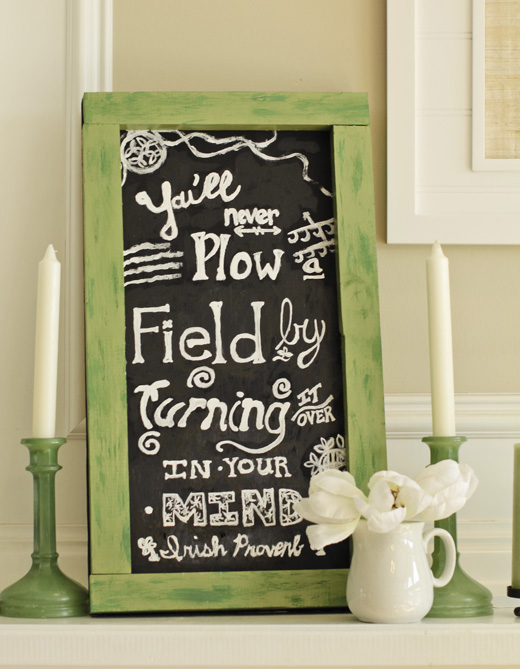 Ya'll
never
Plow a
Field by
Turning IT OVER
IN·YOUR
·MIND
Irish Proverb